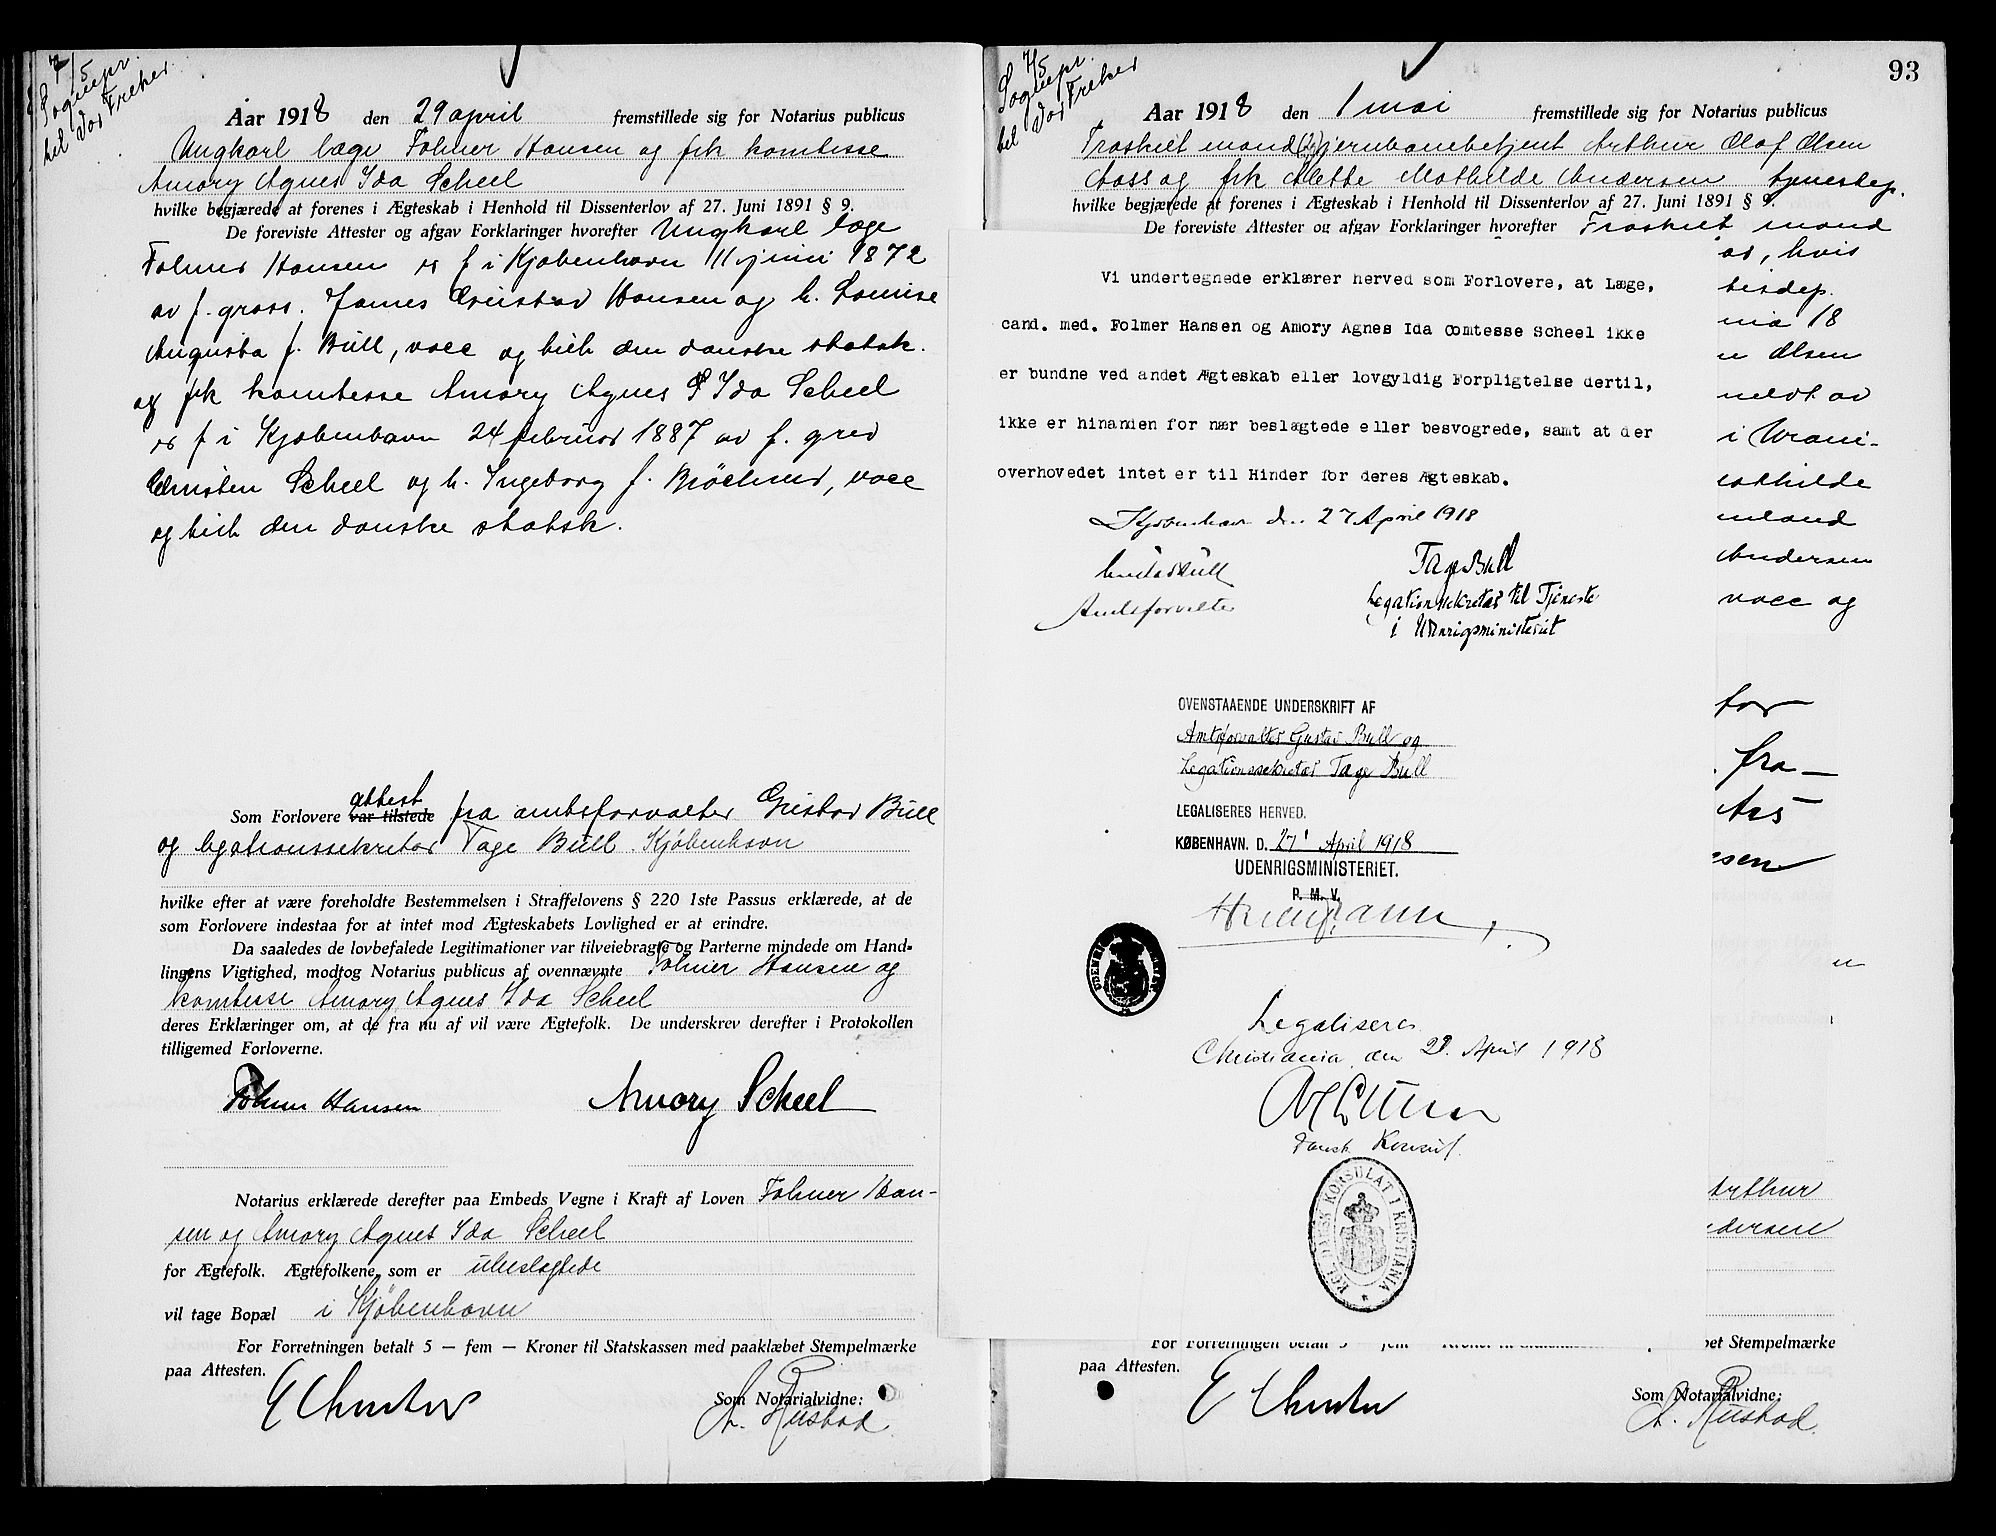 7/5
Sognepr.
til Vor Frelser
Aar 1918 den 29 april fremstillede sig for Notarius publicus
Ungkarl læge Folmer Hansen og frk komtesse
Amory Agnes Ida Scheel
hvilke begjærede at forenes i Ægteskab i Henhold til Dissenterlov af 27. Juni 1891 § 9.
De foreviste Attester og afgav Forklaringer hvorefter Ungkarl læge
Folmer Hansen er f i Kjøbenhavn 11 juni 1872
av f. gross. James Gustav Hansen og h. Louise
Augusta f. Bull, vacc og tilh den danske statsk.
og frk komtesse Amory Agnes Ida Scheel
er f i Kjøbenhavn 24 februar 1887 av f. grev
Christen Scheel og h. Ingeborg f. , vacc
og tilh den danske statsk.
attest
Som Forlovere var tilstede fra amtsforvalter Gustav Bull
og legationssekretær Tage Bull. Kjøbenhavn
hvilke efter at være foreholdte Bestemmelsen i Straffelovens § 220 1ste Passus erklærede, at de
som Forlovere indestaa for at intet mod Ægteskabets Lovlighed er at erindre.
Da saaledes de lovbefalede Legitimationer var tilveiebragte og Parterne mindede om Hand-
lingens Vigtighed, modtog Notarius publicus af ovennævnte Folmer Hansen og
komtesse Amory Agnes Ida Scheel
deres Erklæringer om, at de fra nu af vil være Ægtefolk. De underskrev derefter i Protokollen
tilligemed Forloverne.
Folmer Hansen Amory Scheel
Notarius erklærede derefter paa Embeds Vegne i Kraft af Loven Folmer Han-
sen og Amory Agnes Ida Scheel
for Ægtefolk. Ægtefolkene, som er ubeslægtede
vil tage Bopæl i Kjøbenhavn
For Forretningen betalt 5 — fem — Kroner til Statskassen med paaklæbet Stempelmærke
paa Attesten.
Som Notarialvidne:
A. Rustad
93
7/5
Sognepr.
til Vor Frelser
Aar 1918 den 1 mai fremstillede sig for Notarius publicus
Fraskilt mand (2) jernbanebetjent Arthur Olaf Olsen
Aass og frk Alette Mathilde Andersen tjenestep.
hvilke begjærede at forenes i Ægteskab i Henhold til Dissenterlov af 27. Juni 1891 § 9.
De foreviste Attester og afgav Forklaringer hvorefter Fraskilt mand
Vi undertegnede erklærer herved som Forlovere, at Læge,
cand. med. Folmer Hansen og Amory Agnes Ida Comtesse Scheel ikke
er bundne ved andet Ægteskab eller lovgyldig Forpligtelse dertil,
ikke er hinanden for nær beslægtede eller besvogrede, samt at der
overhovedet intet er til Hinder for deres Ægteskab.
Kjøbenhavn den 27 April 1918
Gustav Bull Tage Bull
Amtsforvalter Legationssekretær til Tjeneste
i Udenrigsministeriet
OVENSTAAENDE UNDERSKRIFT AF
Amtsforvalter Gustav Bull og
Legationssekretær Tage Bull
LEGALISERES HERVED.
KØBENHAVN. D. 27' April 1918
UDENRIGSMINISTERIET.
P. M. V.
Legaliseres
Christiania, den 29. April 1918
Dansk Konsul.
KGL DANSK KONSULAT I KRISTIANIA
, hvis
tisdep.
nia 18
Olsen
meldt av
i Urani-
athilde
Andersen
vacc og
tor
fra
Ars
sen
Arthur
dersen
For Forretningen betalt 5 — fem — Kroner
et Stempelmærke
paa Attesten.
Som Notarialvidne:
A. Rustad